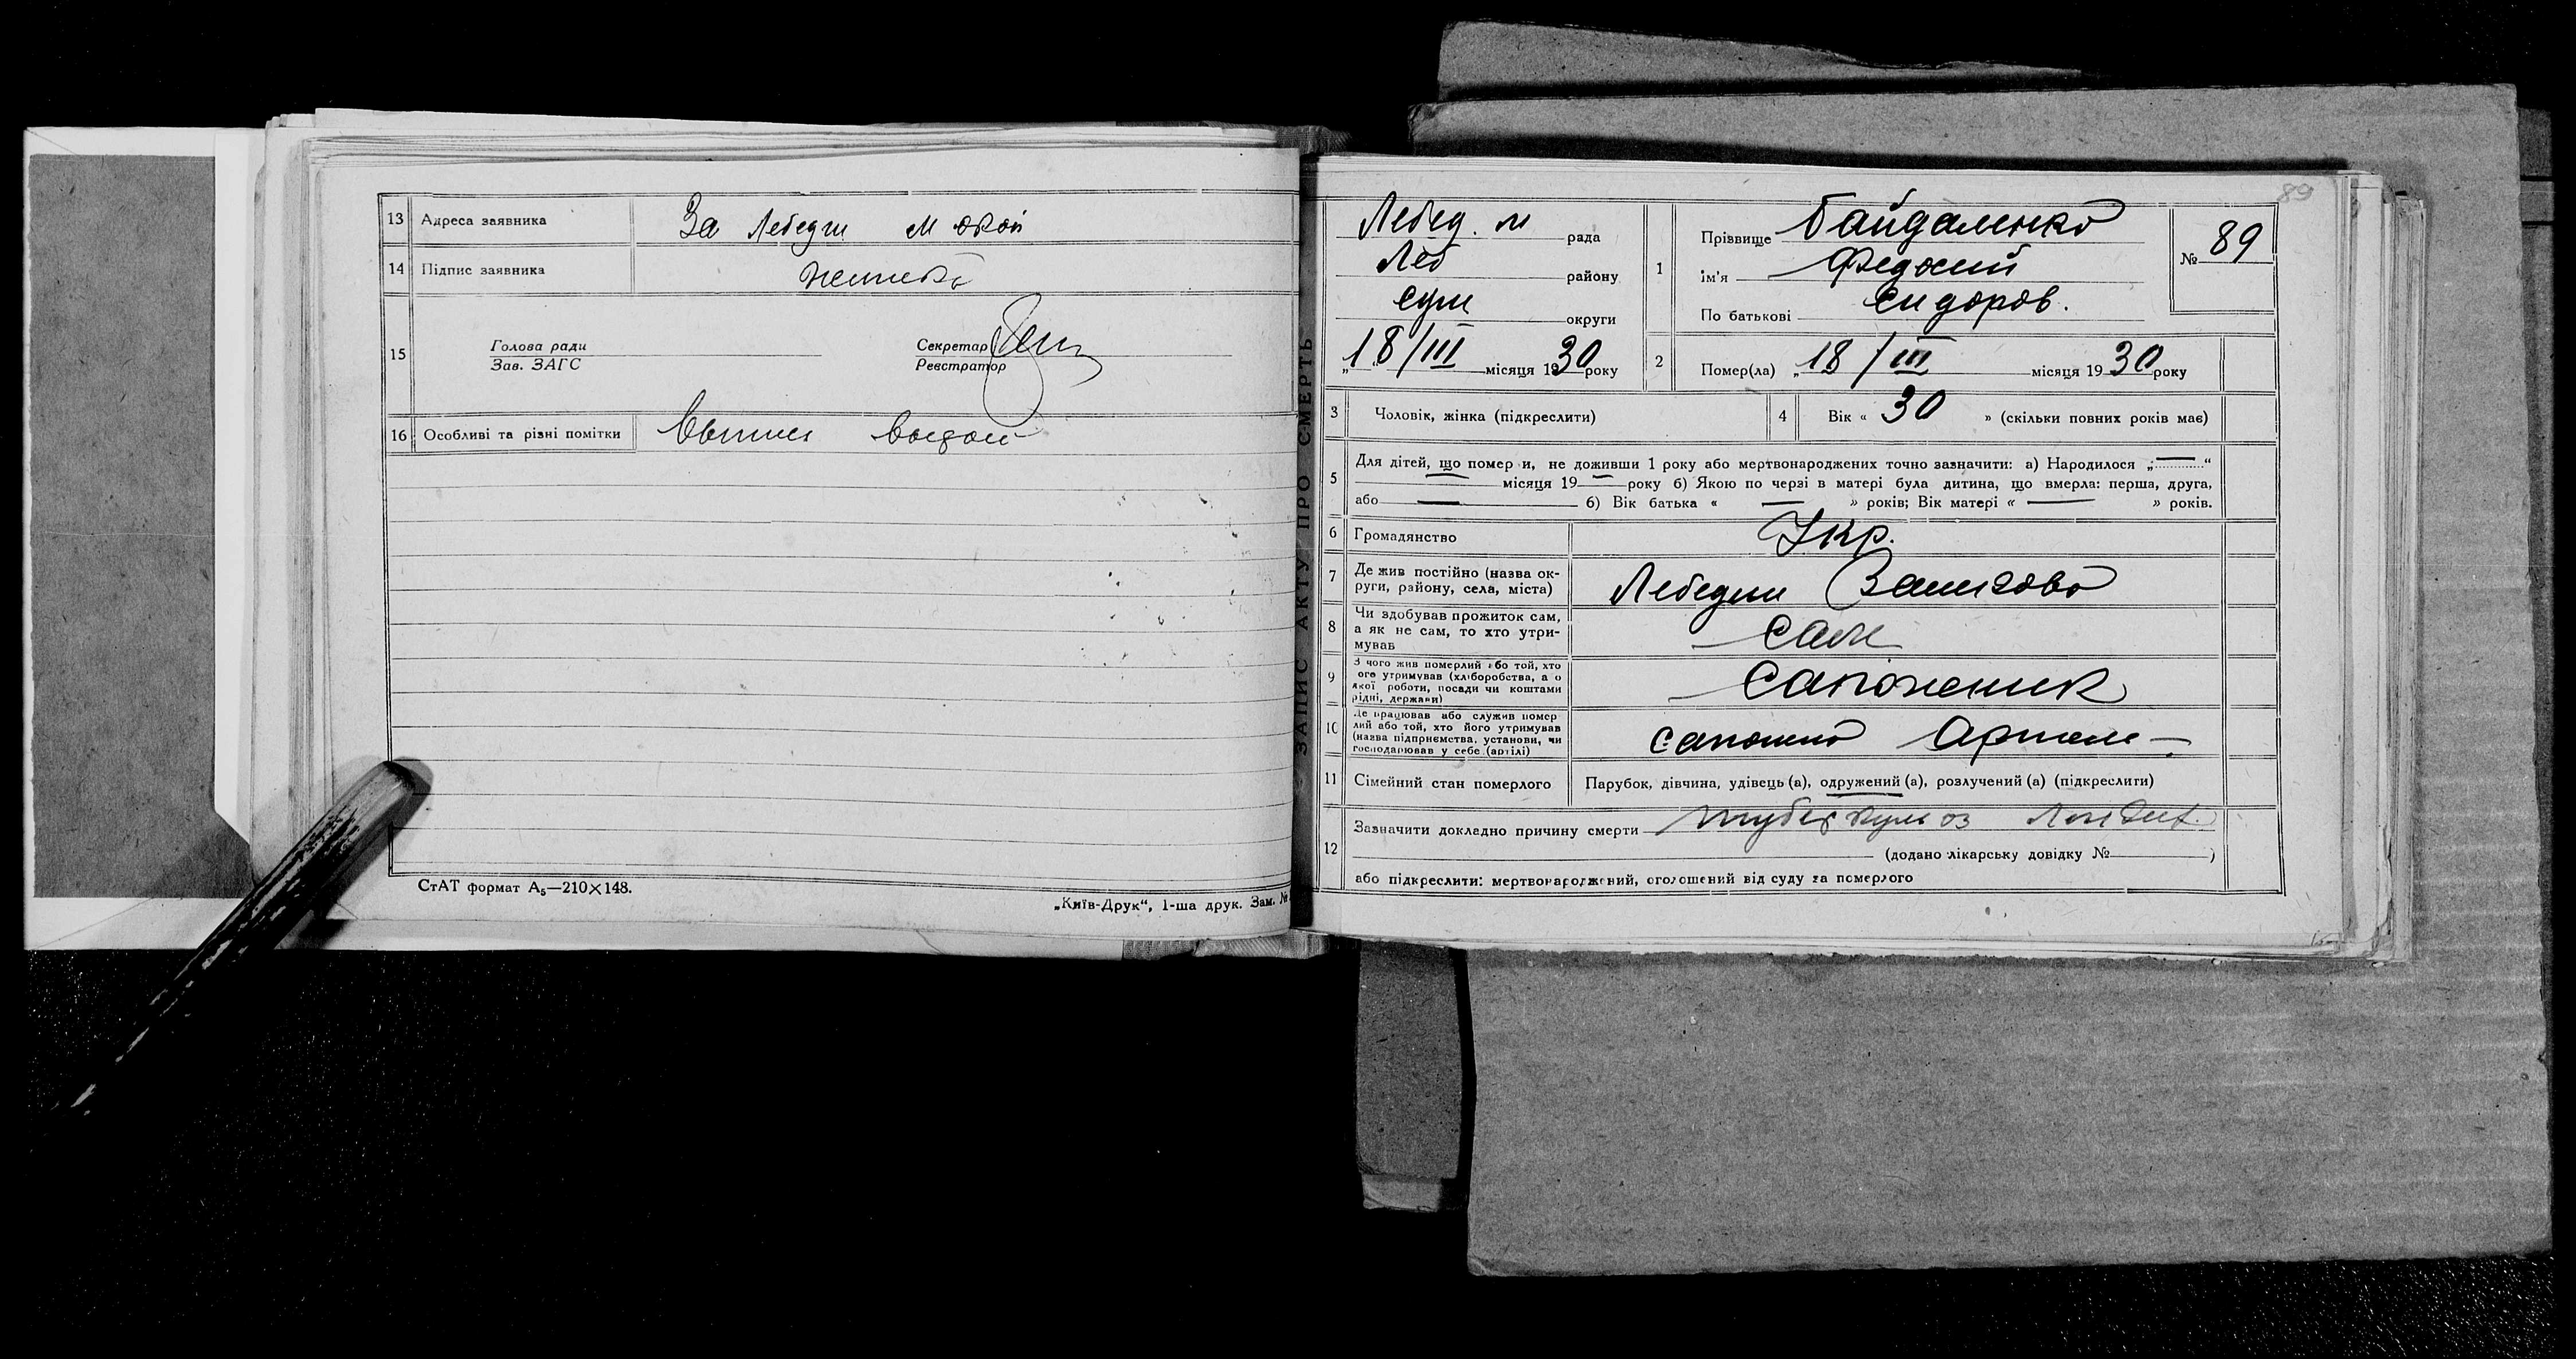 13 Адреса заявника За Лебедин
14 Підпис заявника
15 Голова ради Секретар
Зав. ЗАГС Реєстратор
16 Особливі та різні помітки
СтАТ формат А5—210×148.
„Київ-Друк“, 1-ша друк. Зам. №
ЗАПИС АКТУ ПРО СМЕРТЬ
89
Лебед. м рада
Леб району
Сум округи
„18/III місяця 1930 року
1 Прізвище Байдаленко
ім'я Федосий
По батькові Сидоров.
№ 89
2 Помер(ла) „18/III місяця 1930 року
3 Чоловік, жінка (підкреслити)
4 Вік « 30 » (скільки повних років має)
5 Для дітей, що помер и, не доживши 1 року або мертвонароджених точно зазначити: а) Народилося „—“
— місяця 19— року б) Якою по черзі в матері була дитина, що вмерла: перша, друга,
або — б) Вік батька « — » років; Вік матері « — » років.
6 Громадянство Укр.
7 Де жив постійно (назва ок-
руги, району, села, міста) Лебедин
8 Чи здобував прожиток сам,
а як не сам, то хто утри-
мував сам
9 З чого жив померлий або той, хто
ого утримував (хліборобства, а о
якої роботи, посади чи коштами
рідні, держави) Сапожник
10 Де працював або служив помер
лий або той, хто його утримував
(назва підприємства, установи, чи
господарював у себе (артілі) Артель
11 Сімейний стан померлого Парубок, дівчина, удівець (а), одружений (а), розлучений (а) (підкреслити)
12 Зазначити докладно причину смерти туберкульоз
(додано лікарську довідку № )
або підкреслити: мертвонароджений, оголошений від суду за померлого